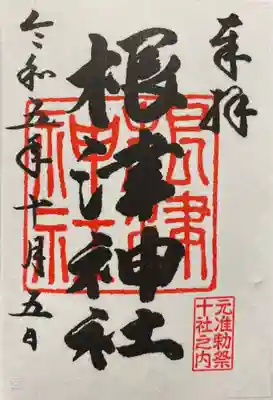 奉拝
根津神社
根津
神社
元准勅祭
十社之内
令和五年十月五日